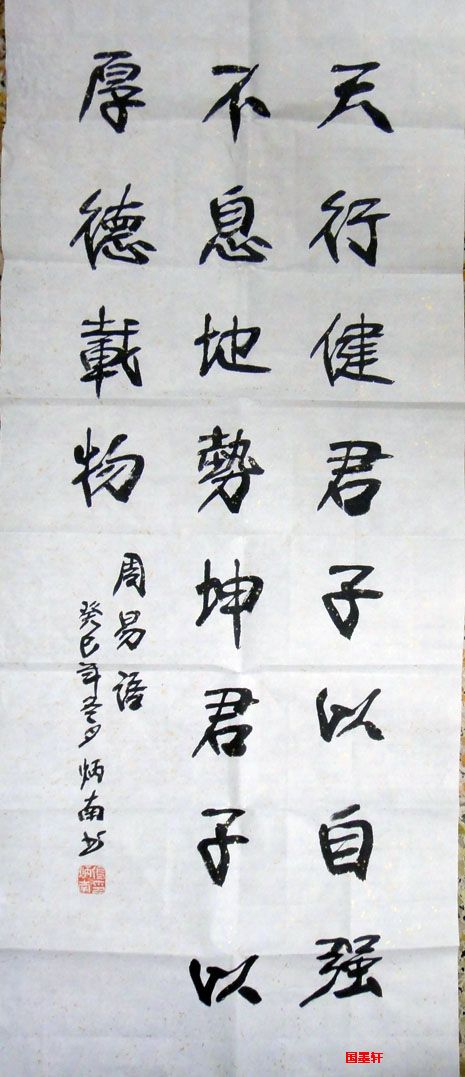 天行健君子以自强
不息地勢坤君子以
厚德載物
周易语
癸巳年冬月炳南书
国墨轩